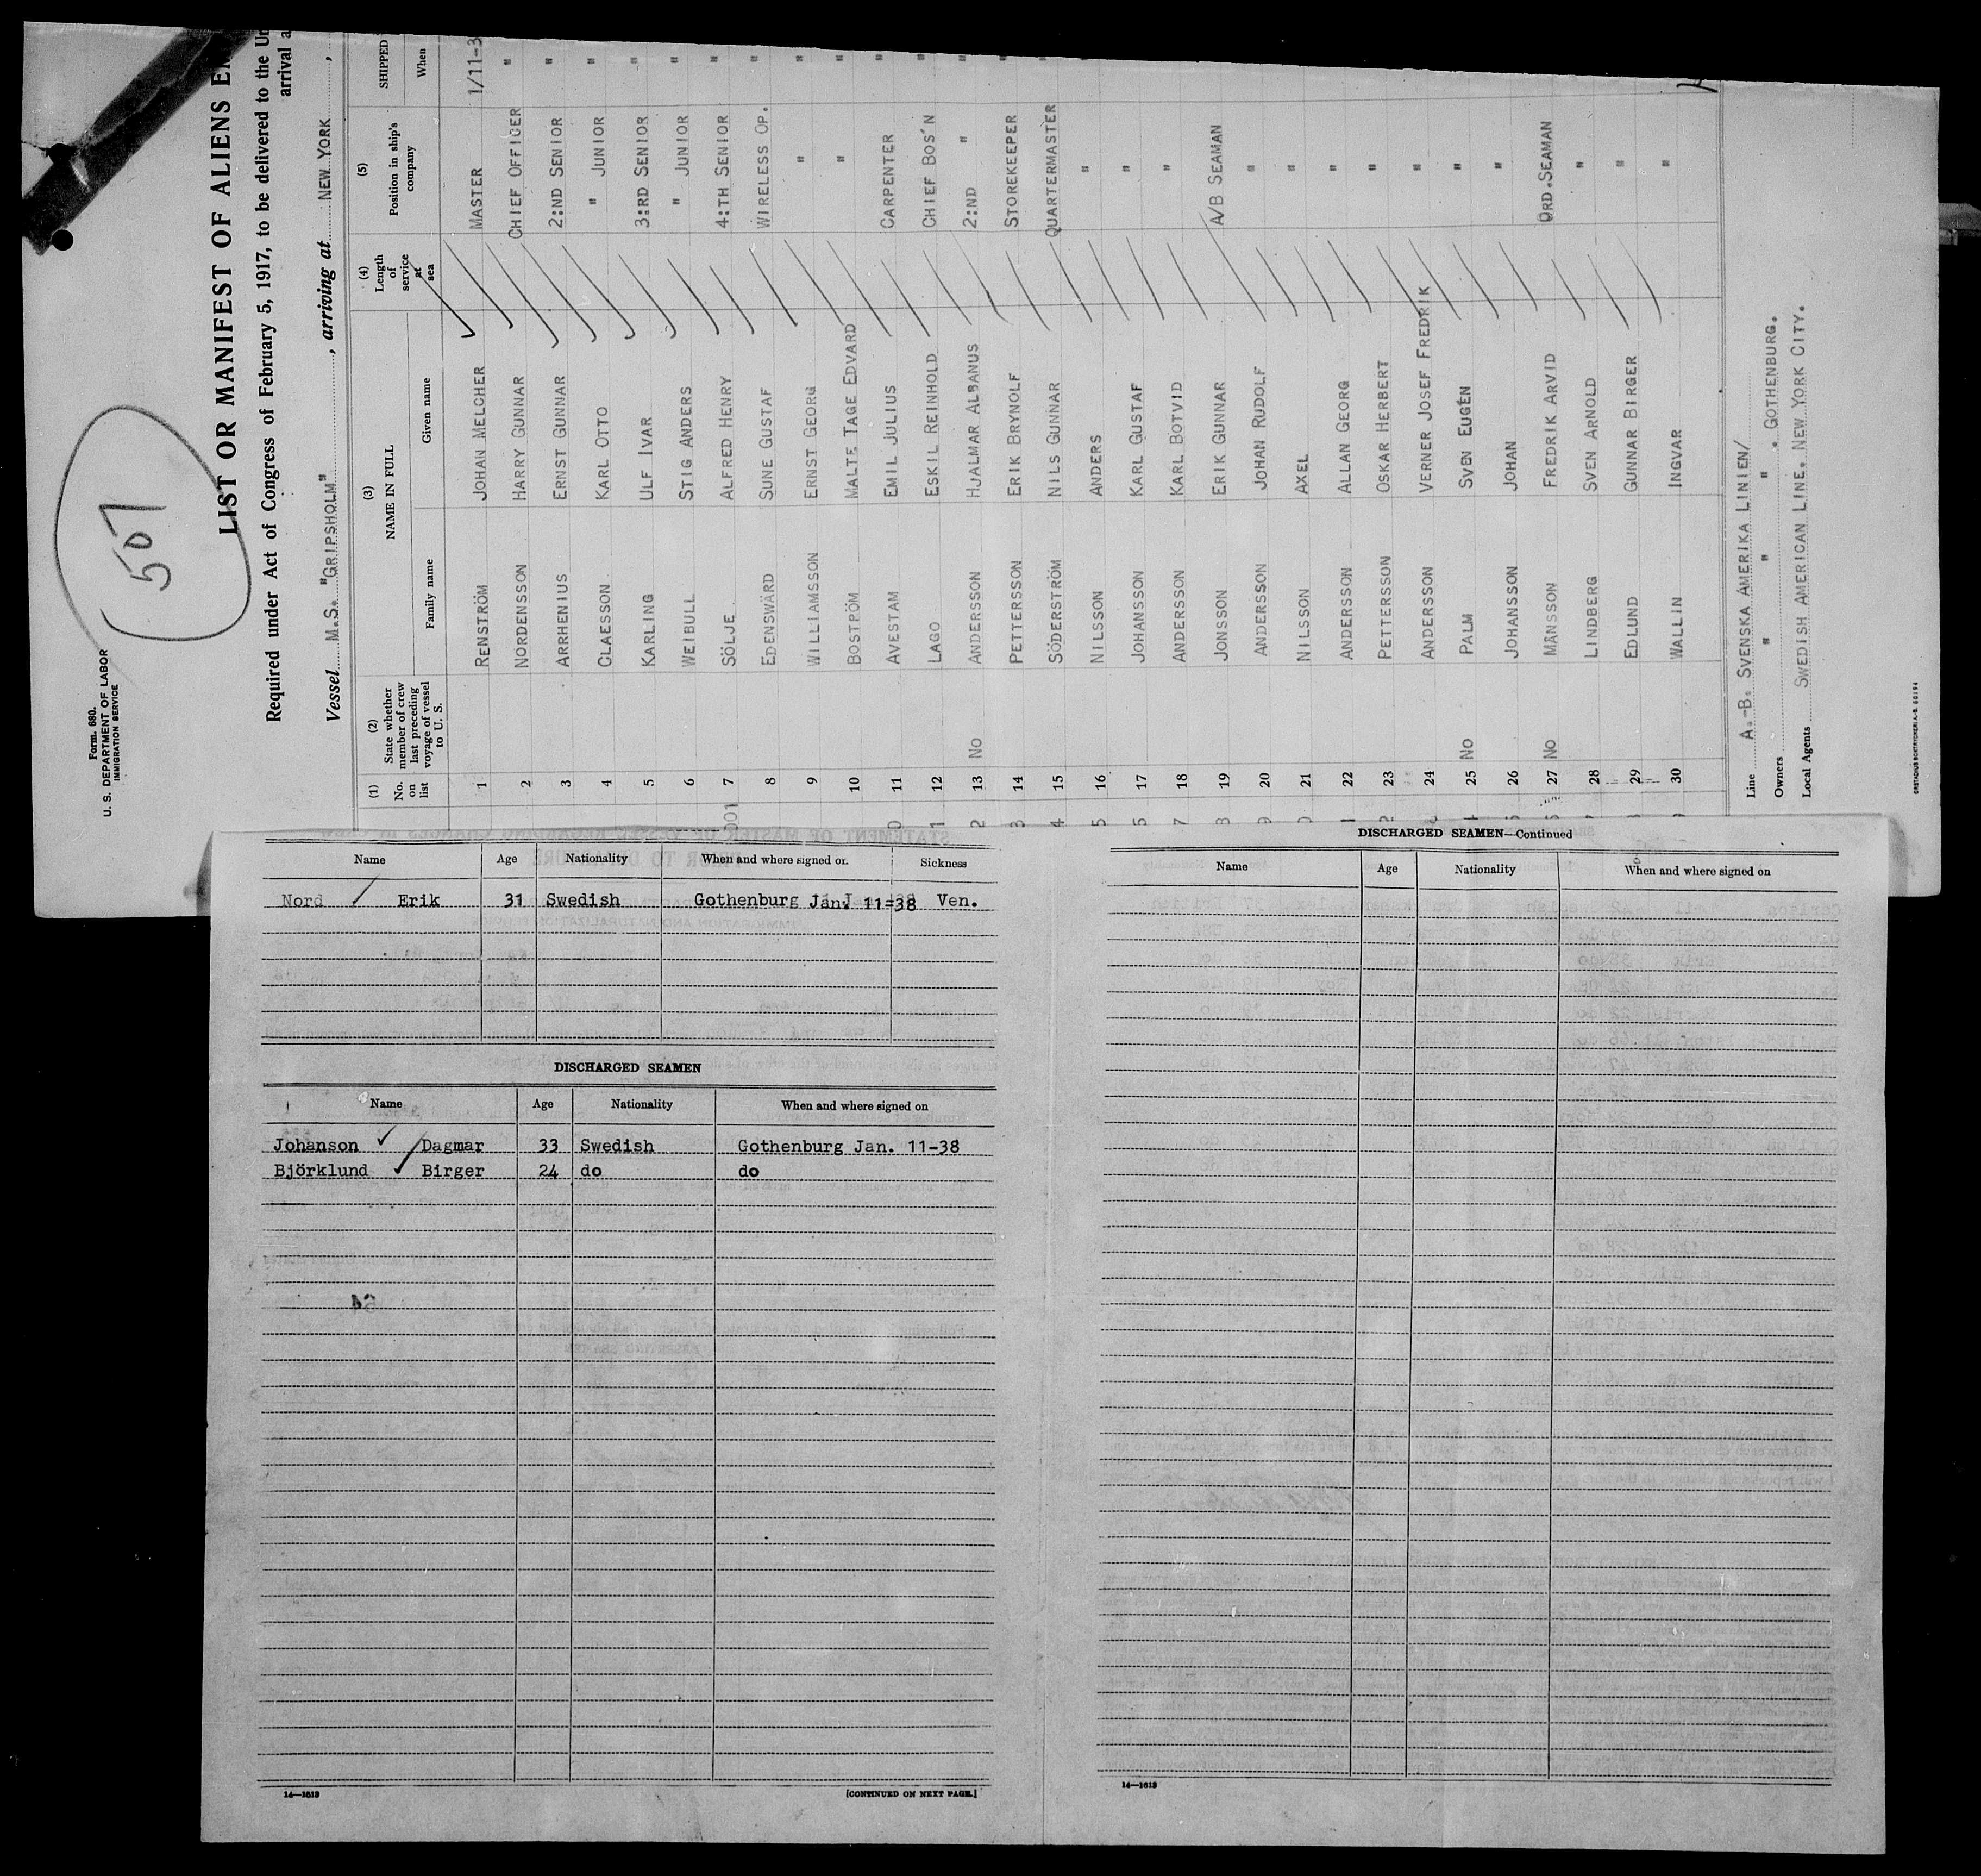 507
Form 680.
U. S. DEPARTMENT OF LABOR
IMMIGRATION SERVICE
LIST OR MANIFEST OF ALIENS
Required under Act of Congress of February 5, 1917, to be delivered to the
arrival
Vessel M.S. "GRIPSHOLM", arriving at NEW YORK,
(1) No. on list (2) State whether member of crew last preceding voyage of vessel to U. S. (3) NAME IN FULL Family name Given name (4) Length of service at sea (5) Position in ship's company SHIPPED When
1 RENSTRÖM JOHAN MELCHER MASTER 1/11-3
2 NORDENSSON HARRY GUNNAR CHIEF OFFICER "
3 ARRHENIUS ERNST GUNNAR 2:ND SENIOR "
4 CLAESSON KARL OTTO " JUNIOR "
5 KARLING ULF IVAR 3:RD SENIOR "
6 WEIBULL STIG ANDERS " JUNIOR "
7 SÖLJE ALFRED HENRY 4:TH SENIOR "
8 EDENSWÄRD SUNE GUSTAF WIRELESS OP. "
9 WILLIAMSSON ERNST GEORG " "
10 BOSTRÖM MALTE TAGE EDVARD " "
11 AVESTAM EMIL JULIUS CARPENTER "
12 LAGO ESKIL REINHOLD CHIEF BOS'N "
13 No ANDERSSON HJALMAR ALBANUS 2:ND " "
14 PETTERSSON ERIK BRYNOLF STOREKEEPER "
15 SÖDERSTRÖM NILS GUNNAR QUARTERMASTER "
16 NILSSON ANDERS "
17 JOHANSSON KARL GUSTAF "
18 ANDERSSON KARL BOTVID "
19 JONSSON ERIK GUNNAR A/B SEAMAN
20 ANDERSSON JOHAN RUDOLF "
21 NILSSON AXEL "
22 ANDERSSON ALLAN GEORG "
23 PETTERSSON OSKAR HERBERT "
24 ANDERSSON VERNER JOSEF FREDRIK "
25 No PALM SVEN EUGÉN "
26 JOHANSSON JOHAN "
27 No MÅNSSON FREDRIK ARVID ORD.SEAMAN
28 LINDBERG SVEN ARNOLD "
29 EDLUND GUNNAR BIRGER "
30 WALLIN INGVAR "
Line A.-B. SVENSKA AMERIKA LINIEN/
Owners " " " . GOTHENBURG.
Local Agents SWEDISH AMERICAN LINE. NEW YORK CITY.
Name Age Nationality When and where signed on Sickness
Nord Erik 31 Swedish Gothenburg Jan. 11-38 Ven.
DISCHARGED SEAMEN
Name Age Nationality When and where signed on
Johanson Dagmar 33 Swedish Gothenburg Jan. 11-38
Björklund Birger 24 do do
14—1613 [CONTINUED ON NEXT PAGE.]
DISCHARGED SEAMEN—Continued
Name Age Nationality When and where signed on
14—1613